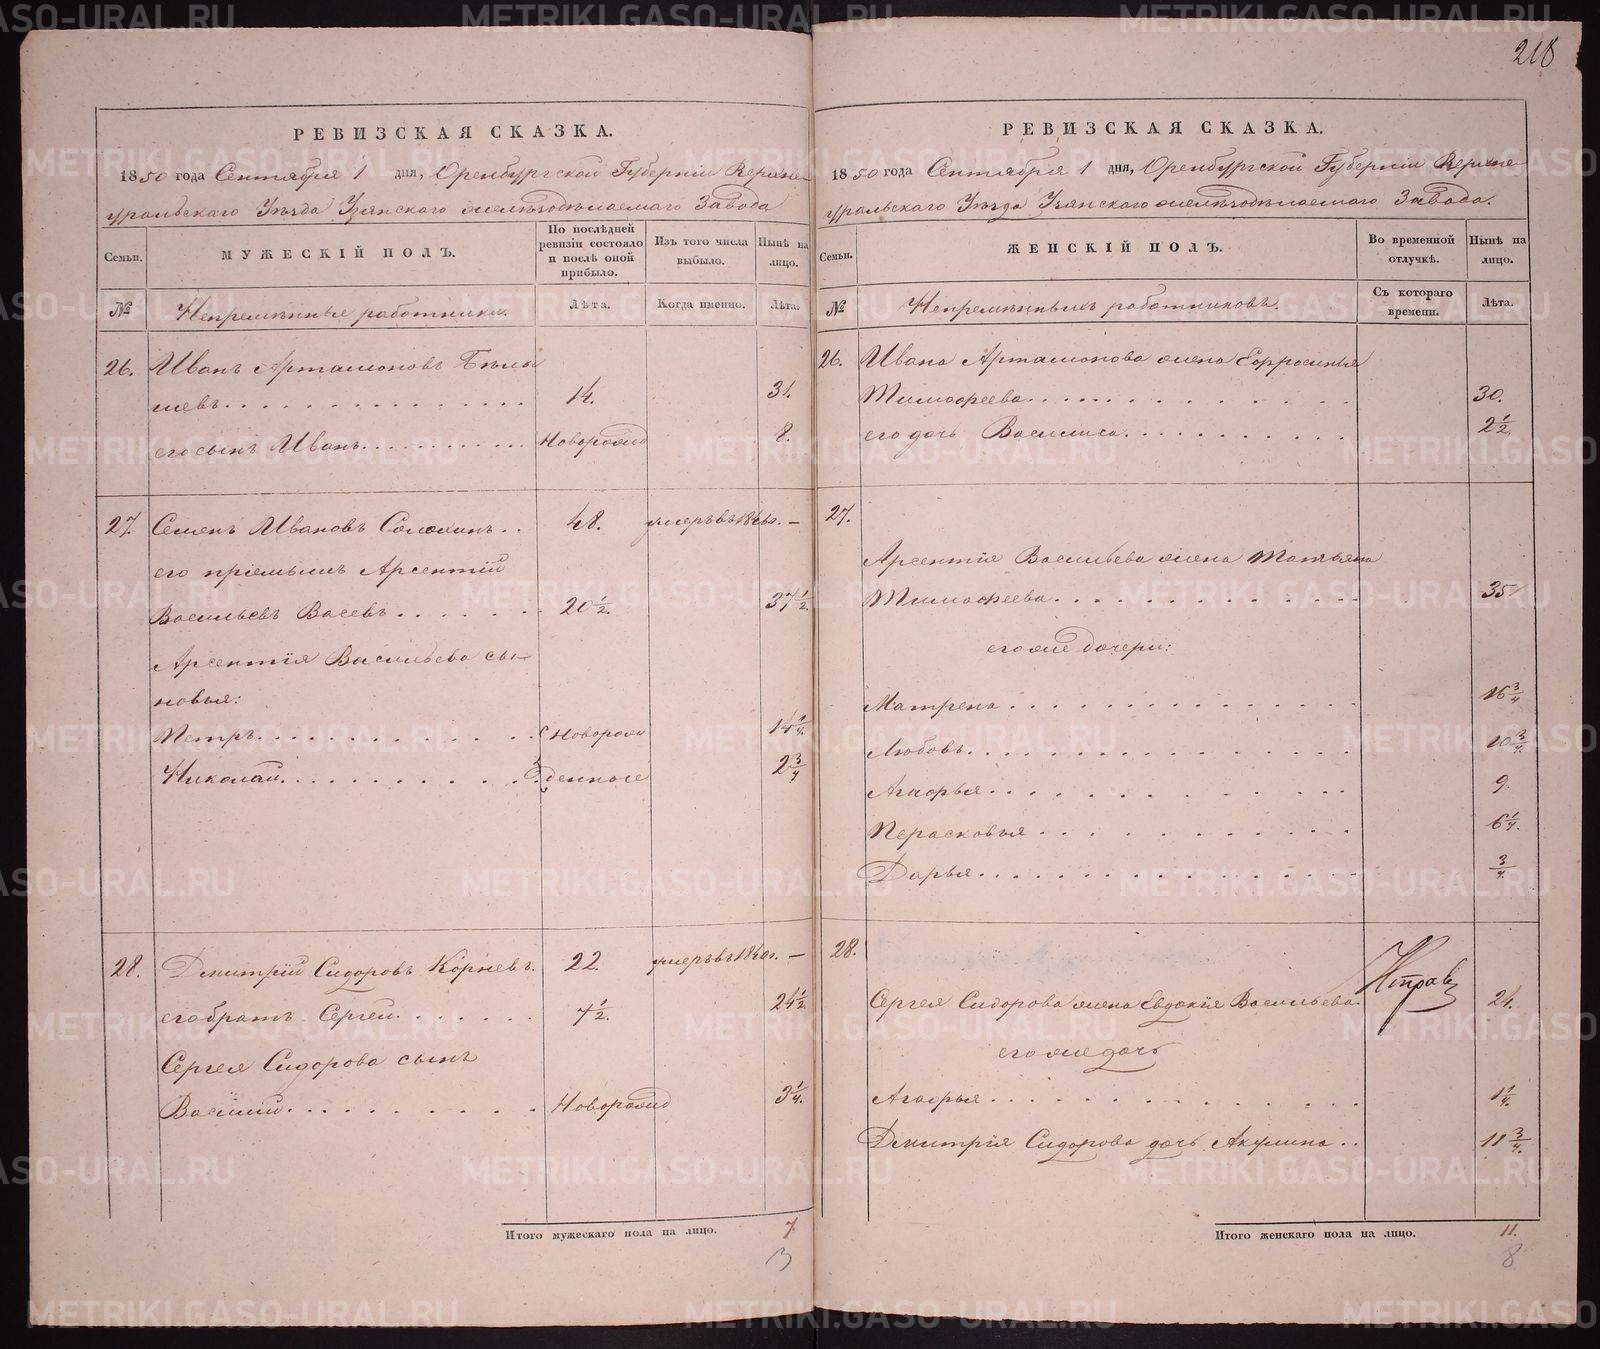 218
РЕВИЗСКАЯ СКАЗКА.
1850 года Сентября 1 дня, Оренбургской Губерніи Верхне-
уральскаго Уѣзда Узянскаго желѣзодѣлаемаго Завода
Семьи.
МУЖЕСКІЙ ПОЛЪ.
По послѣдней ревизіи состояло и послѣ оной прибыло.
Изъ того числа выбыло.
Нынѣ на лицо.
№
Непремѣнные работники.
Лѣта.
Когда именно.
Лѣта.
26. Иванъ Артамоновъ Бѣлы
шевъ 14. 31.
его сынъ Иванъ Новорожд 8.
27. Семенъ Ивановъ 48. умеръ въ 184 г. —
его пріемышъ Арсентій
Васильевъ Васевъ 20 1/2. 37 1/2.
Арсентія Васильева сы-
новья:
Петръ Новорож 14 1/4.
Николай денные 2 3/4
28. Дмитрій Сидоровъ Корневъ. 22. умеръ въ 1840 г. —
его братъ Сергей 7 1/2. 24 1/2.
Сергея Сидорова сынъ
Василій Новорожд 3 1/4.
Итого мужескаго пола на лицо. 7.
3
РЕВИЗСКАЯ СКАЗКА.
1850 года Сентября 1 дня, Оренбургской Губерніи Верхне
уральскаго Уѣзда Узянскаго желѣзодѣлаемаго Завода.
Семьи.
ЖЕНСКІЙ ПОЛЪ.
Во временной отлучкѣ.
Нынѣ на лицо.
№
Непремѣнныхъ работниковъ.
Съ котораго времени.
Лѣта.
26. Ивана Артамонова жена Ефросинья
Тимофеева 30.
его дочь Василиса 2 1/2.
27.
Арсентія Васильева жена Татьяна
Тимофеева 35
его же дочери:
Матрена 16 3/4
Любовь 10 3/4.
Агафья 9.
Перасковья 6 1/4.
Дарья 3/4.
28.
Сергея Сидорова жена Евдокія Васильева 24.
его же дочь
Агафья 1 1/4.
Дмитрія Сидорова дочь Акулина 11 3/4.
Итого женскаго пола на лицо. 11.
8
METRIKI.GASO-URAL.RU